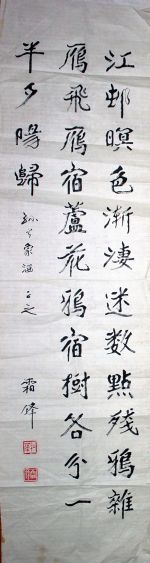 江邨暝色漸淒迷数點殘鴉雜
雁飛雁宿蘆花鴉宿樹各分一
半夕陽歸
霜鋒